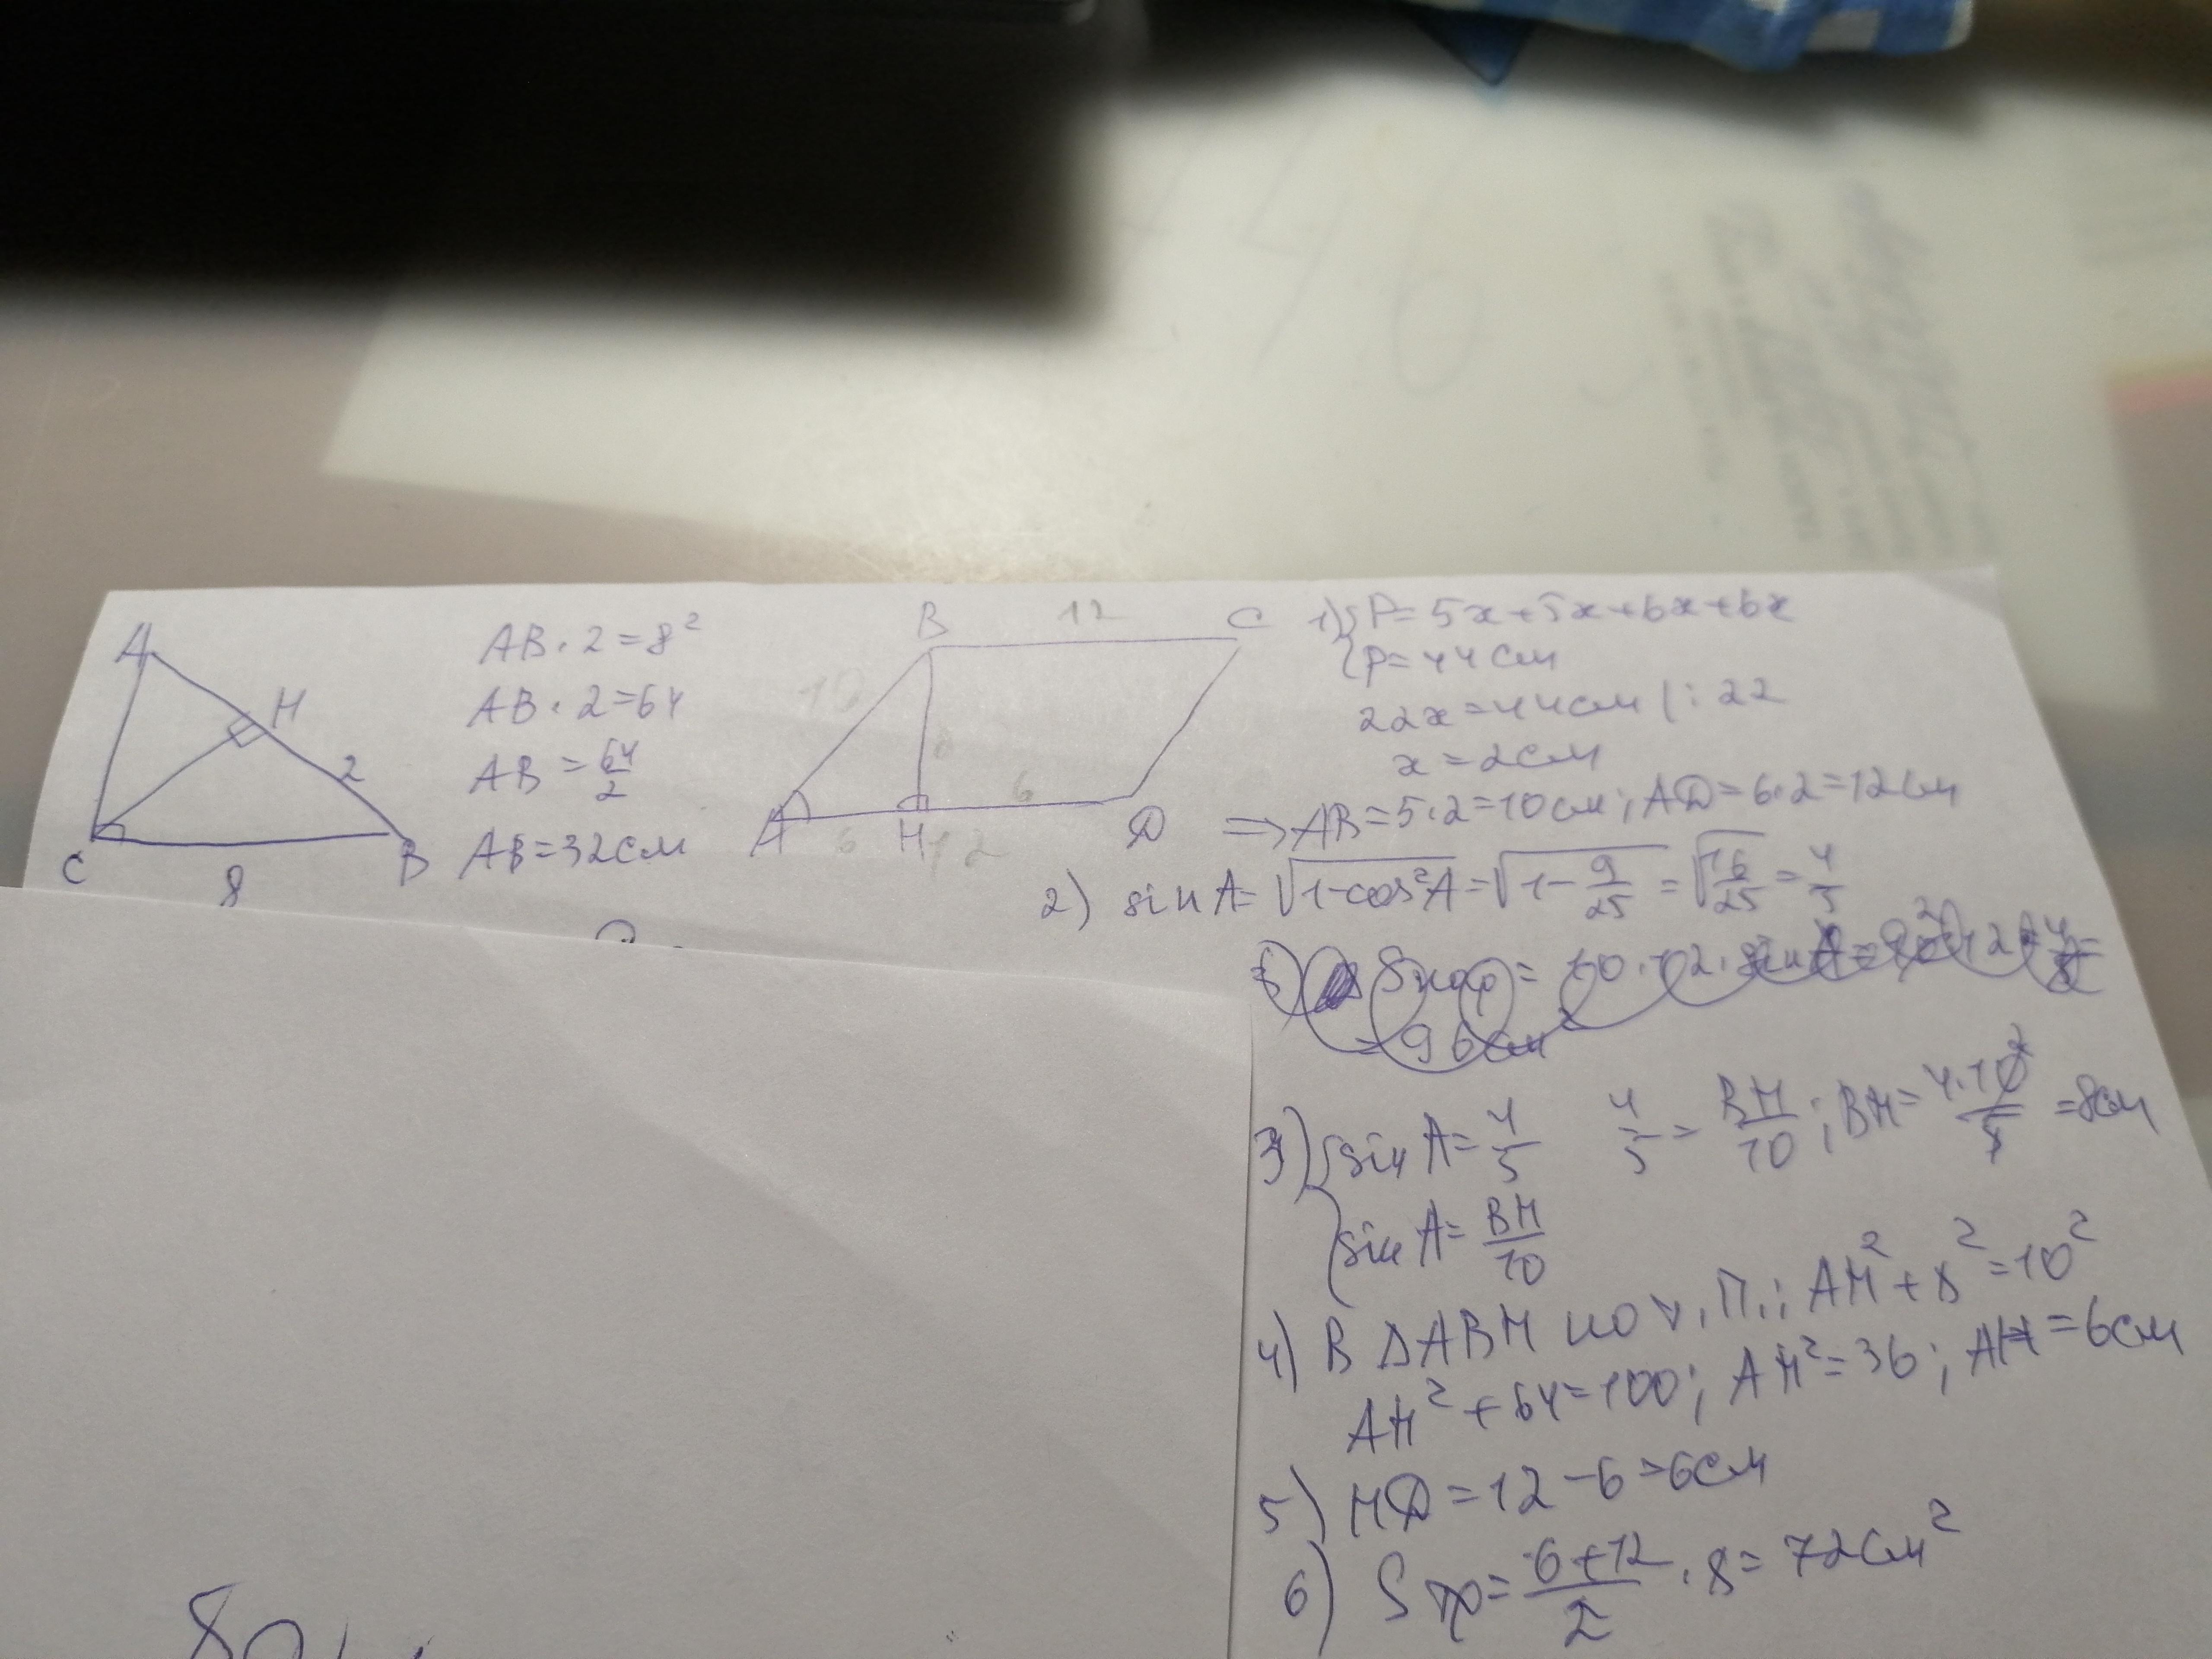 A
H
2
C
8
B
AB · 2 = 8²
AB · 2 = 64
AB = 64/2
AB = 32см
B
12
C
10
8
6
A
6
H
12
D
1) { P = 5x + 5x + 6x + 6x
P = 44см
22x = 44см | : 22
x = 2см
=> AB = 5·2 = 10см; AD = 6·2 = 12см
2) sin A = √1-cos²A = √1 - 9/25 = √16/25 = 4/5
Sпар = 10·12· sin A =
= 96см²
3) { sin A = 4/5 4/5 = BH/10 ; BH = 4·10²/5 = 8см
sin A = BH/10
4) В ΔABH по т.П.: AH² + 8² = 10²
AH² + 64 = 100; AH² = 36; AH = 6см
5) HD = 12 - 6 = 6см
6) Sтр = 6+12/2 · 8 = 72см²